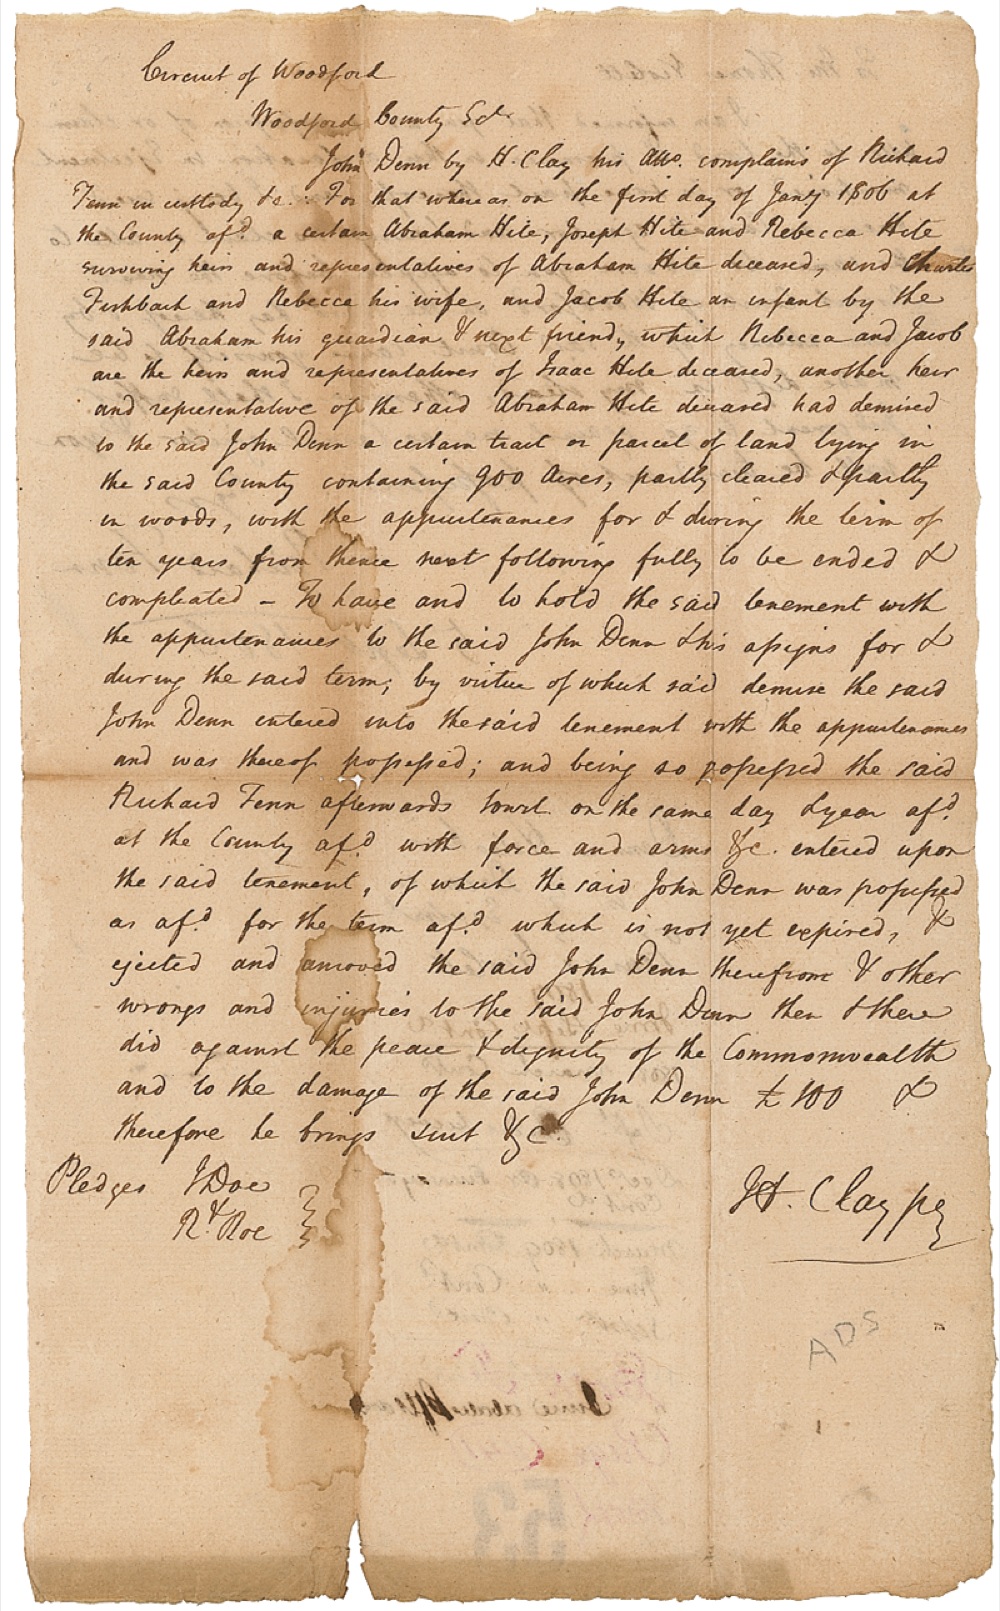 Circuit of Woodford
Woodford County Sct
John Denn by H. Clay his Atto. complains of Richard
Fenn in custody &c. For that whereas on the first day of Jany 1806 at
the County afd. a certain Abraham Hite, Joseph Hite and Rebecca Hite
surviving heirs and representatives of Abraham Hite deceased, and Charles
Fishback and Rebecca his wife, and Jacob Hite an infant by the
said Abraham his guardian & next friend, which Rebecca and Jacob
are the heirs and representatives of Isaac Hite deceased, another heir
and representative of the said Abraham Hite deceased had demised
to the said John Denn a certain tract or parcel of land lying in
the said County containing 900 Acres, partly cleared & partly
in woods, with the appurtenances for & during the term of
ten years from thence next following fully to be ended &
compleated – To have and to hold the said tenement with
the appurtenances to the said John Denn & his assigns for &
during the said term; by virtue of which said demise the said
John Denn entered into the said tenement with the appurtenances
and was thereof possessed; and being so possessed the said
Richard Fenn afterwards towit on the same day & year afd.
at the County afd. with force and arms &c. entered upon
the said tenement, of which the said John Denn was possessed
as afd. for the term afd. which is not yet expired, &
ejected and amoved the said John Denn therefrom & other
wrongs and injuries to the said John Denn then & there
did against the peace & dignity of the Commonwealth
and to the damage of the said John Denn £100 &
therefore he brings suit &c.
Pledges J Doe
Rd. Roe
H. Clay pq
ADS